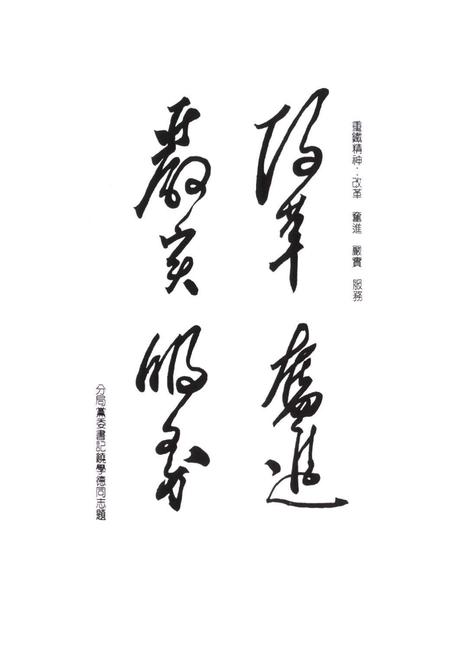 重鐵精神：改革　奮進　嚴實　服務
改革　奮進
嚴实　服务
分局黨委書記饒學德同志題